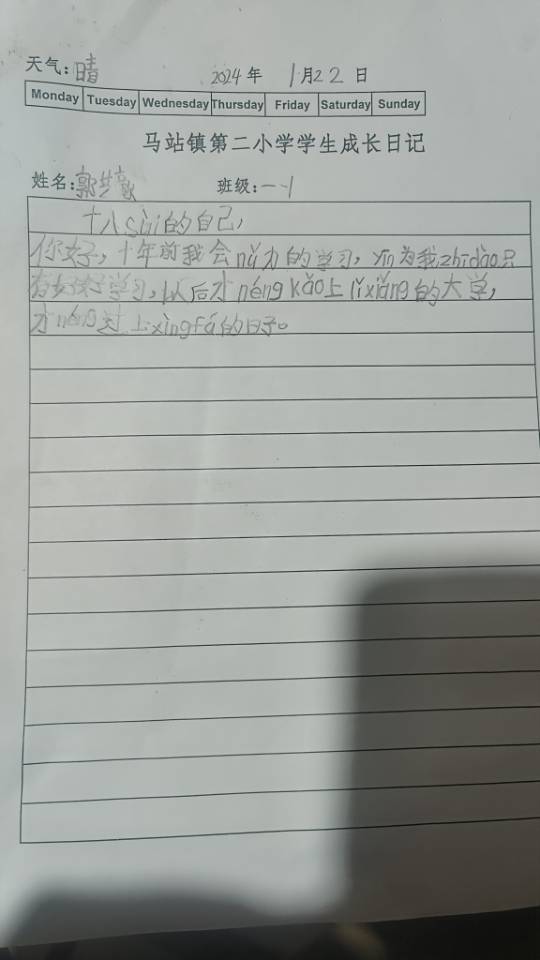 天气:晴 2024年 1月22日
Monday Tuesday Wednesday Thursday Friday Saturday Sunday
马站镇第二小学学生成长日记
姓名:郭 班级:一1
十八suì的自己,
你好,十年前我会nǔ力的学习,yīn为我zhīdào只
有好好学习,以后才néng kǎo上lǐxiǎng的大学,
才néng过上xìngfú的日子。